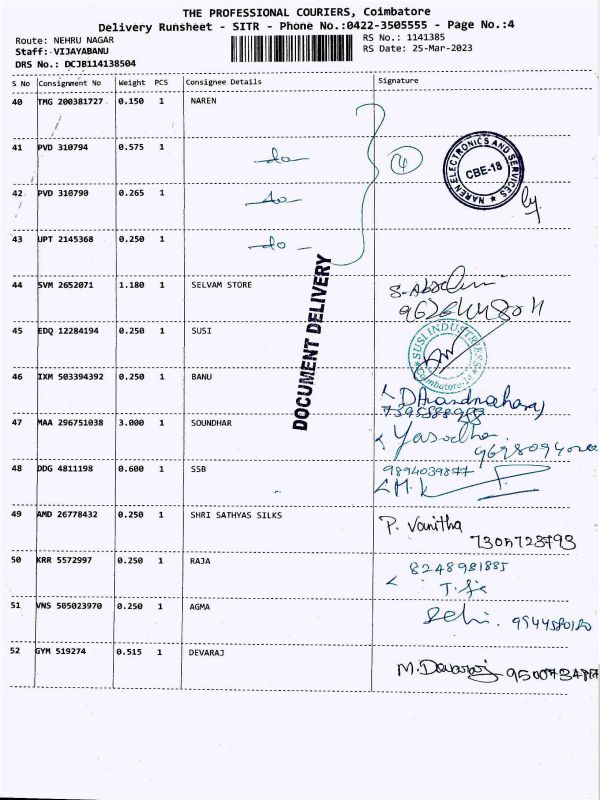 THE PROFESSIONAL COURIERS, Coimbatore
Delivery Runsheet - SITR - Phone No.:0422-3505555 - Page No.:4
Route: NEHRU NAGAR RS No.: 1141385
Staff: VIJAYABANU RS Date: 25-Mar-2023
DRS No.: DCJB114138504
S No Consignment No Weight PCS Consignee Details Signature
40 TMG 200381727 0.150 1 NAREN
41 PVD 310794 0.575 1 do
4
NAREN ELECTRONICS AND SERVICES
CBE-18
42 PVD 310790 0.265 1 do
43 UPT 2145368 0.250 1 do
DOCUMENT DELIVERY
44 SVM 2652071 1.180 1 SELVAM STORE
45 EDQ 12284194 0.250 1 SUSI
SUSI INDUSTRIES
46 IXM 503394392 0.250 1 BANU
47 MAA 296751038 3.000 1 SOUNDHAR Yasodha
48 DDG 4811198 0.600 1 SSB 9894039877
M.K
49 AMD 26778432 0.250 1 SHRI SATHYAS SILKS P. Vanitha
7305723793
50 KRR 5572997 0.250 1 RAJA 8248981885
51 VNS 505023970 0.250 1 AGMA
52 GYM 519274 0.515 1 DEVARAJ M. Devaraj